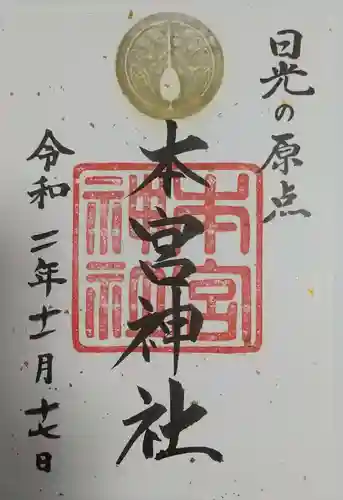 日光の原点
本宮神社
本宮
神社
令和二年十一月十七日